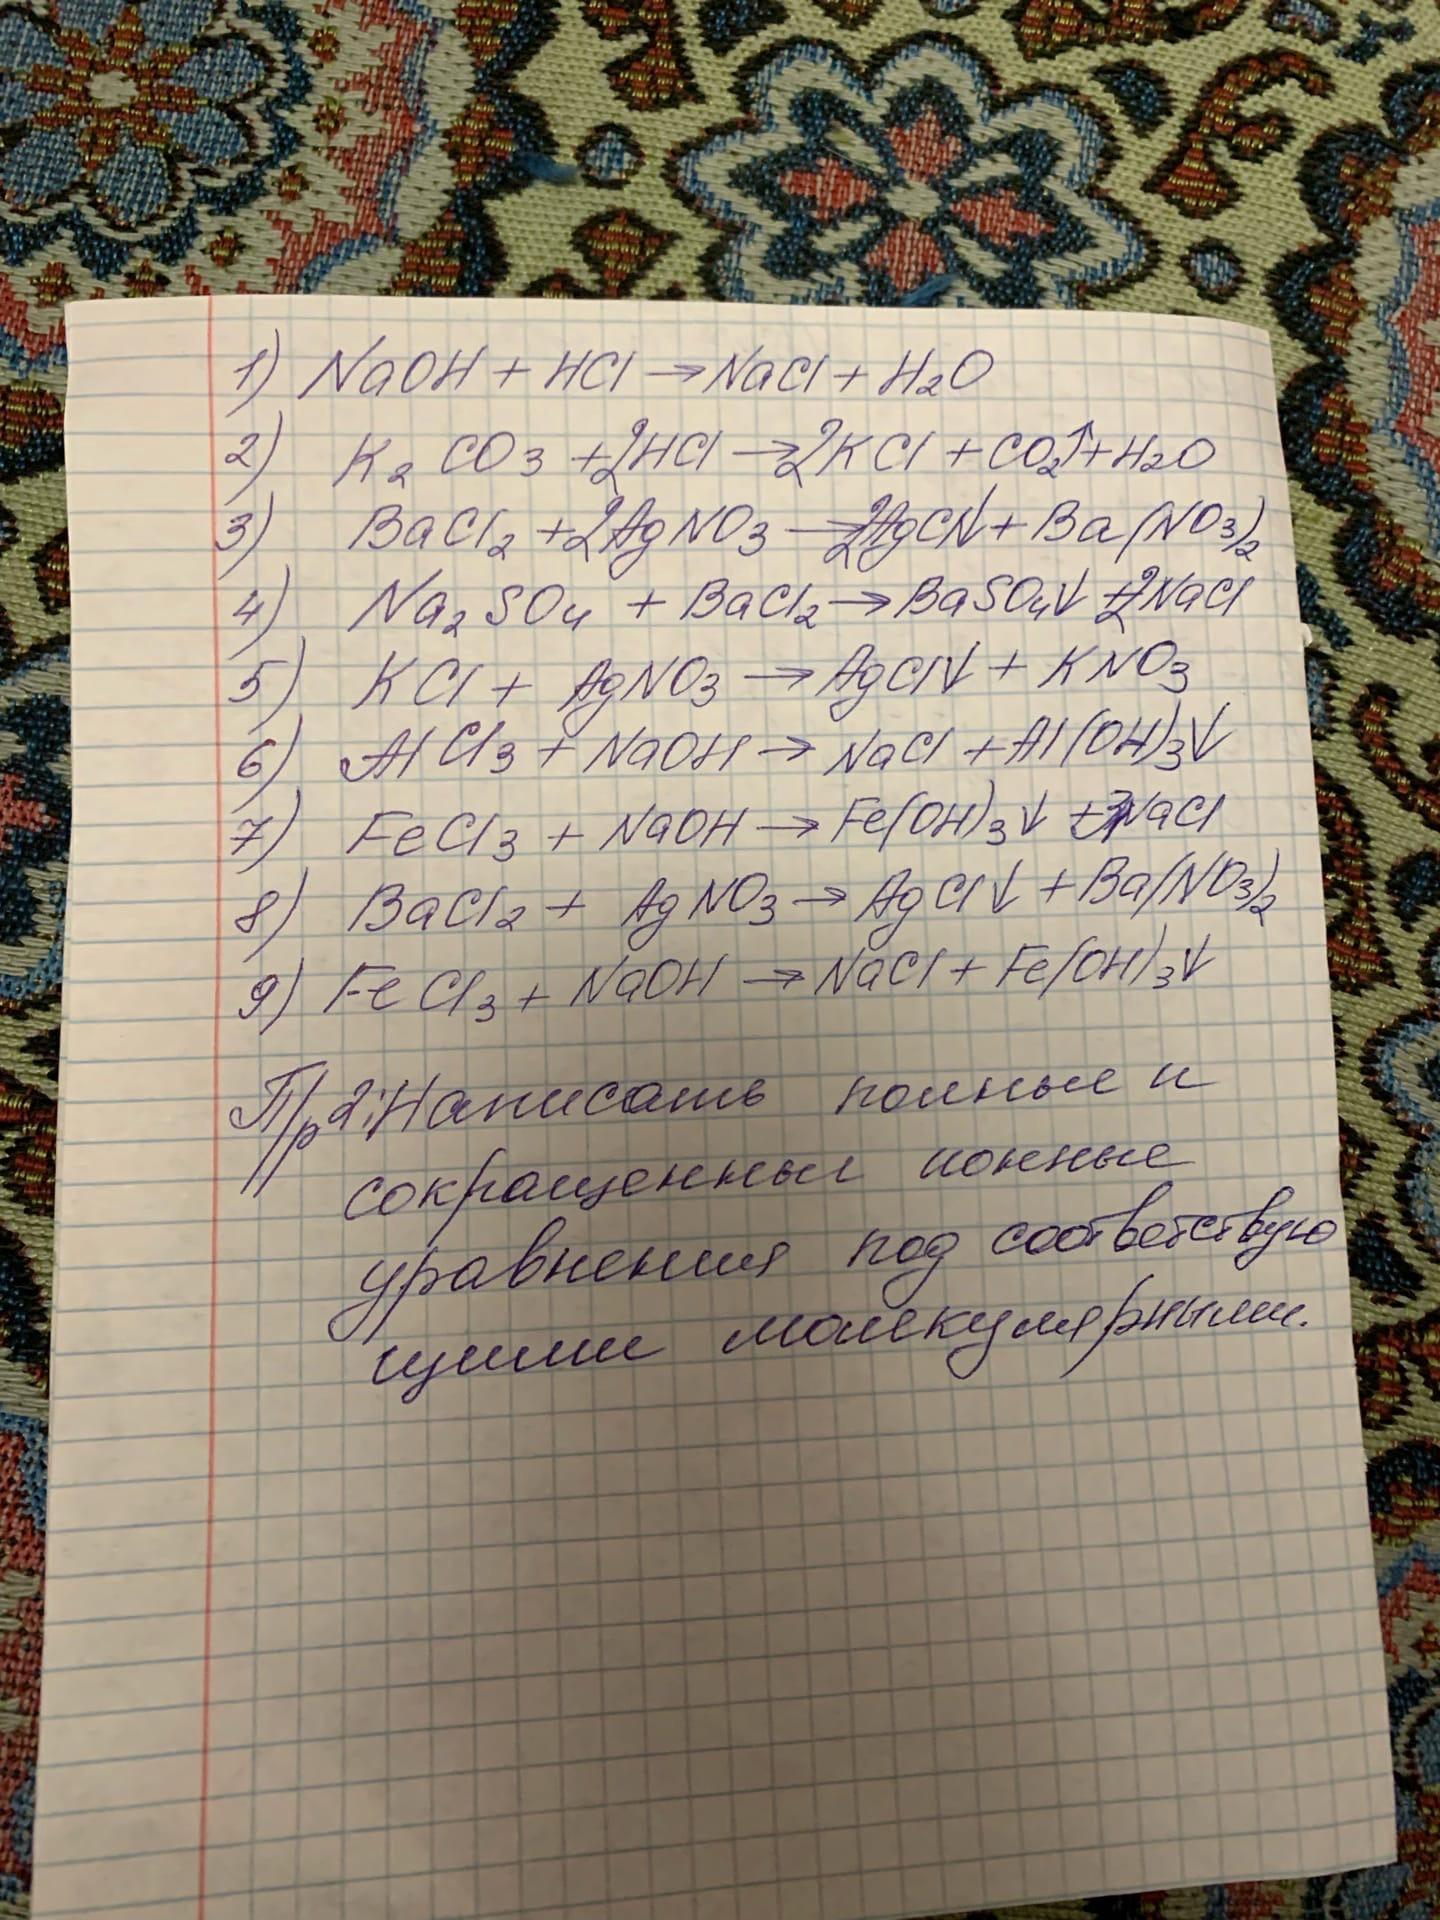 1) NaOH + HCl → NaCl + H₂O
2) K₂CO₃ + 2HCl → 2KCl + CO₂↑ + H₂O
3) BaCl₂ + 2AgNO₃ → 2AgCl↓ + Ba(NO₃)₂
4) Na₂SO₄ + BaCl₂ → BaSO₄↓ + 2NaCl
5) KCl + AgNO₃ → AgCl↓ + KNO₃
6) AlCl₃ + NaOH → NaCl + Al(OH)₃↓
7) FeCl₃ + NaOH → Fe(OH)₃↓ + 3NaCl
8) BaCl₂ + AgNO₃ → AgCl↓ + Ba(NO₃)₂
9) FeCl₃ + NaOH → NaCl + Fe(OH)₃↓
Пр2: Написать полные и
сокращенные ионные
уравнения под соответствую
щими молекулярными.